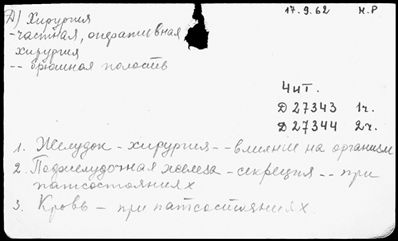 А) Хирургия
17.9.62
Н.Р
- частная, оперативная
хирургия
-- брюшная полость
Чит.
Д 27343 1ч.
Д 27344 2ч.
1. Желудок - хирургия -- влияние на организм
2. Поджелудочная железа - секреция -- при
патсостояниях
3. Кровь - при патсостояниях.